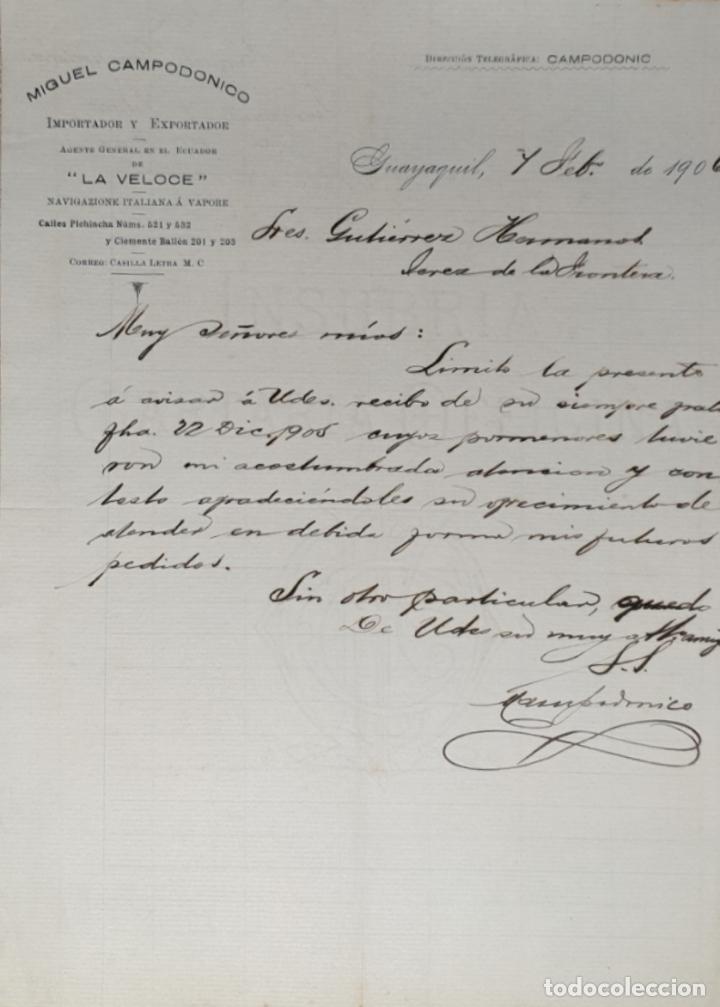 MIGUEL CAMPODONICO
IMPORTADOR Y EXPORTADOR
AGENTE GENERAL EN EL ECUADOR
DE
"LA VELOCE"
NAVIGAZIONE ITALIANA Á VAPORE
Calles Pichincha Núms. 521 y 532
y Clemente Ballén 201 y 203
CORREO: CASILLA LETRA M. C
DIRECCIÓN TELEGRÁFICA: CAMPODONIC
Guayaquil, 7 Feb. de 1906
Sres. Gutiérrez Hermanos
Jerez de la Frontera.
Muy Señores míos:
Limito la presente
á avisar á Udes. recibo de su siempre grata
fha. 22 Dic. 1905 cuyos pormenores tuvie
ron mi acostumbrada atencion y con
testo agradeciéndoles su ofrecimiento de
atender en debida forma mis futuros
pedidos.
Sin otro particular, quedo
De Udes su muy
S.S.
Campodonico
todocoleccion